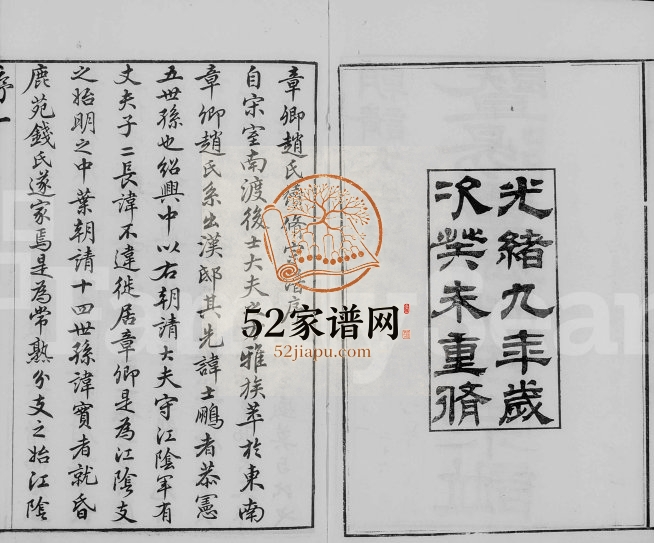 光緒九年歲
次癸未重脩
章卿趙氏續脩宗譜序
自宋室南渡後士大夫雅族萃於東南
章卿趙氏系出漢邸其先諱士鵬者恭憲
五世孫也紹興中以右朝請大夫守江陰軍有
丈夫子二長諱不違徙居章卿是為江陰支
之始明之中葉朝請十四世孫諱實者就昏
鹿苑錢氏遂家焉是為常熟分支之始江陰
序一
52家谱网
52jiapu.com